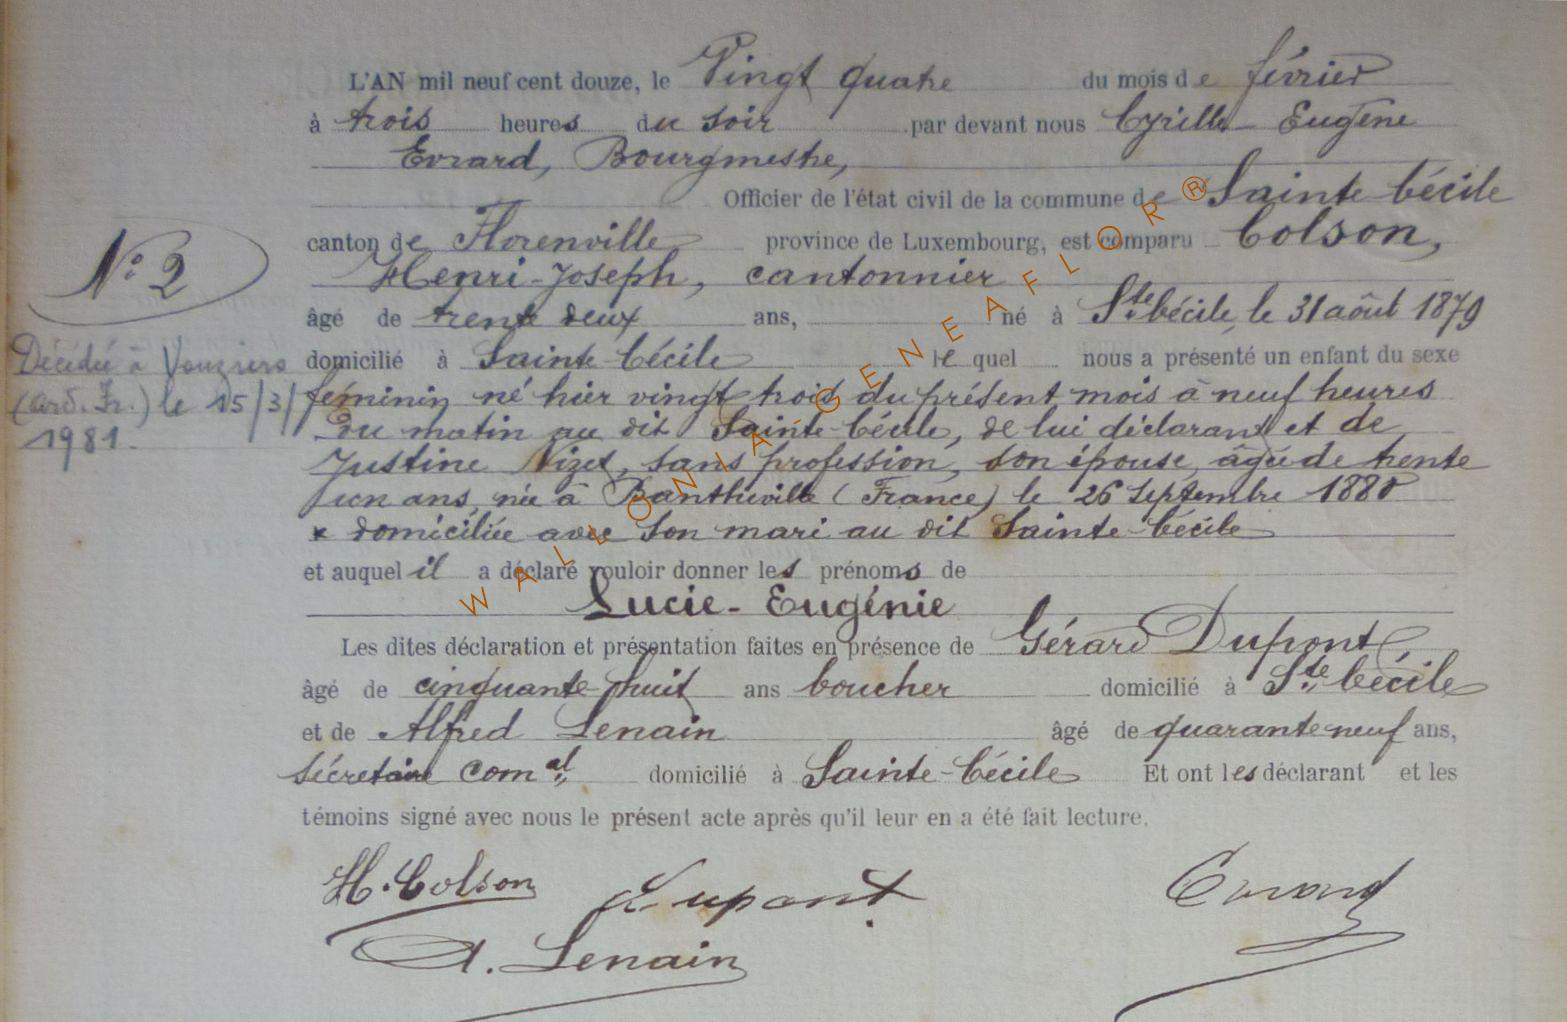 L'AN mil neuf cent douze, le Vingt quatre du mois de février
à trois heures du soir par devant nous Cyrille Eugène
Evrard, Bourgmestre,
Officier de l'état civil de la commune de Sainte Cécile
canton de Florenville province de Luxembourg, est comparu Colson,
Henri-Joseph, cantonnier
âgé de trente deux ans, né à Ste Cécile, le 31 août 1879
domicilié à Sainte Cécile le quel nous a présenté un enfant du sexe
féminin né hier vingt trois du présent mois à neuf heures
du matin au dit Sainte-Cécile, de lui déclarant et de
Justine Nizet, sans profession, son épouse, âgée de trente
un ans, née à Bantheville (France) le 26 septembre 1880
domiciliée avec son mari au dit Sainte-Cécile
et auquel il a déclaré vouloir donner les prénoms de
Lucie-Eugénie
Les dites déclaration et présentation faites en présence de Gérard Dupont,
âgé de cinquante-huit ans boucher domicilié à Ste Cécile
et de Alfred Lenain âgé de quarante neuf ans,
sécretaire comal domicilié à Sainte-Cécile Et ont les déclarant et les
témoins signé avec nous le présent acte après qu'il leur en a été fait lecture.
H. Colson Dupont. Evrard
A. Lenain
No 2
Décédée à Vouziers
(ard. Fr.) le 15/3/
1981.
WALLONIA GENEAFLOR®